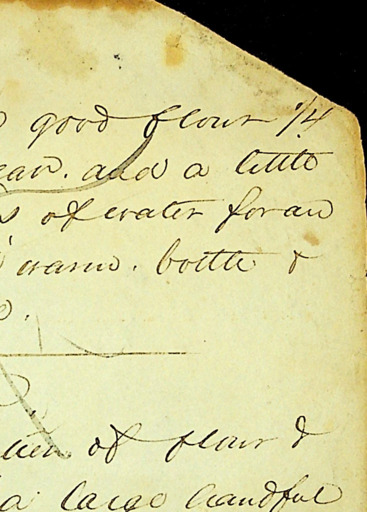 good flour 1/4
and a little
s of water for an
warm. bottle &
of flour &
a large handful